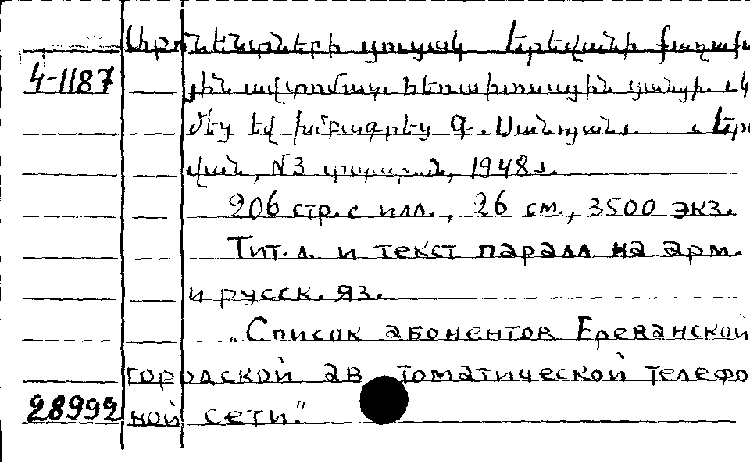 Աբոնենտների ցուցակ Երեվանի քաղաքա
4-1187 յին ավտոմատ հեռախոսային ցանցի. Կ
մեց եվ խմբագրեց Գ. Երե
վան, N3 տպարան, 1948 թ.
206 стр. с илл., 26 см., 3500 экз.
Тит. л. и текст паралл на арм.
и русск. яз.
„Список абонентов Ереванской
городской ав томатической телефо
28992 ной сети."